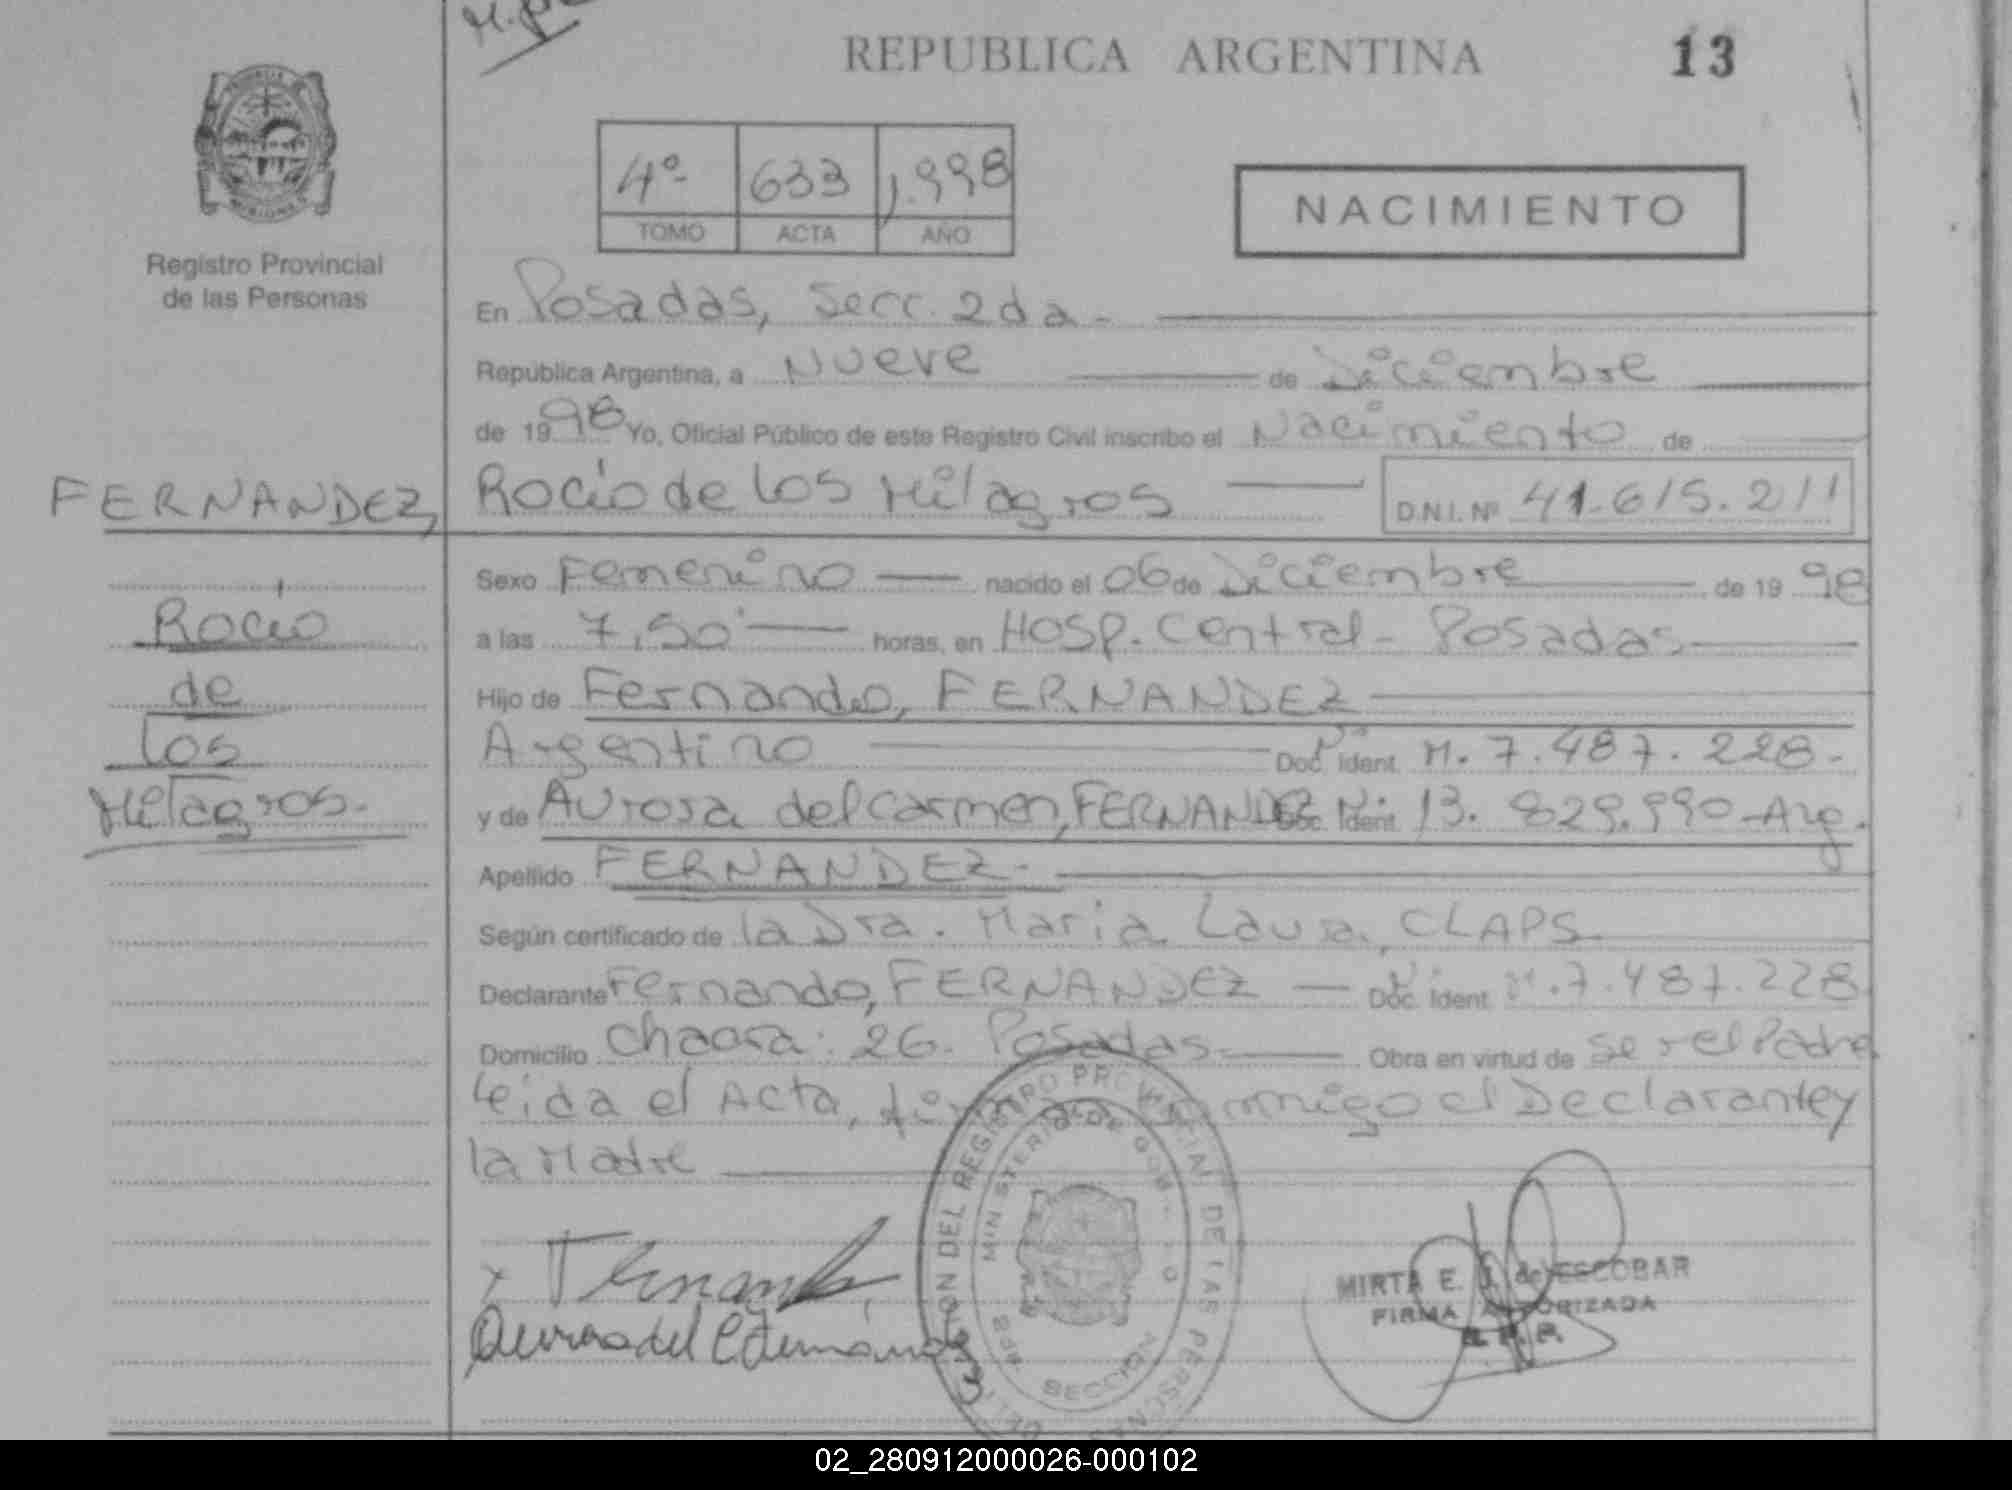 REPUBLICA ARGENTINA
13
Registro Provincial
de las Personas
4º 633 1.998
TOMO ACTA AÑO
NACIMIENTO
En Posadas, Secc. 2da-
República Argentina, a Nueve de Diciembre
de 1998 Yo, Oficial Público de este Registro Civil inscribo el Nacimiento de
FERNANDEZ, Rocío de los Milagros D.N.I. Nº 41.615.211
Rocío
de
los
Milagros.-
Sexo Femenino nacido el 06 de Diciembre de 1998
a las 7,50 horas, en Hosp. Central - Posadas
Hijo de Fernando, FERNANDEZ
Argentino Doc. Ident. M. 7.487.228.-
y de Aurora del Carmen, FERNANDEZ Doc. Ident. 13.829.990-Arg.
Apellido FERNANDEZ.-
Según certificado de la Dra. Maria Laura, CLAPS
Declarante Fernando, FERNANDEZ Doc. Ident. M.7.487.228
Domicilio Chacra: 26. Posadas. Obra en virtud de ser el Padre
leida el Acta, conmigo el Declarante y
la Madre
MINISTERIO DE GOB
DEL REGISTRO PROVINCIAL DE LAS PERSONAS
SECCION
MIRTA E. de ESCOBAR
FIRMA AUTORIZADA
02_280912000026-000102